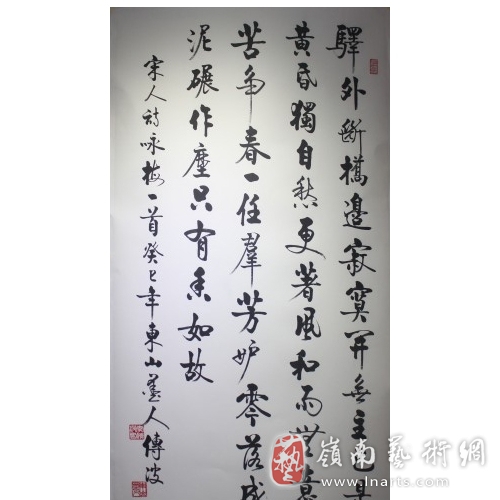 驛外斷橋邊寂寞開無主已是
黃昏獨自愁更著風和雨無意
苦爭春一任羣芳妒零落成
泥碾作塵只有香如故
宋人詩咏梅一首癸巳年東山墨人傅波
藝 嶺南藝術網
www.lnarts.com